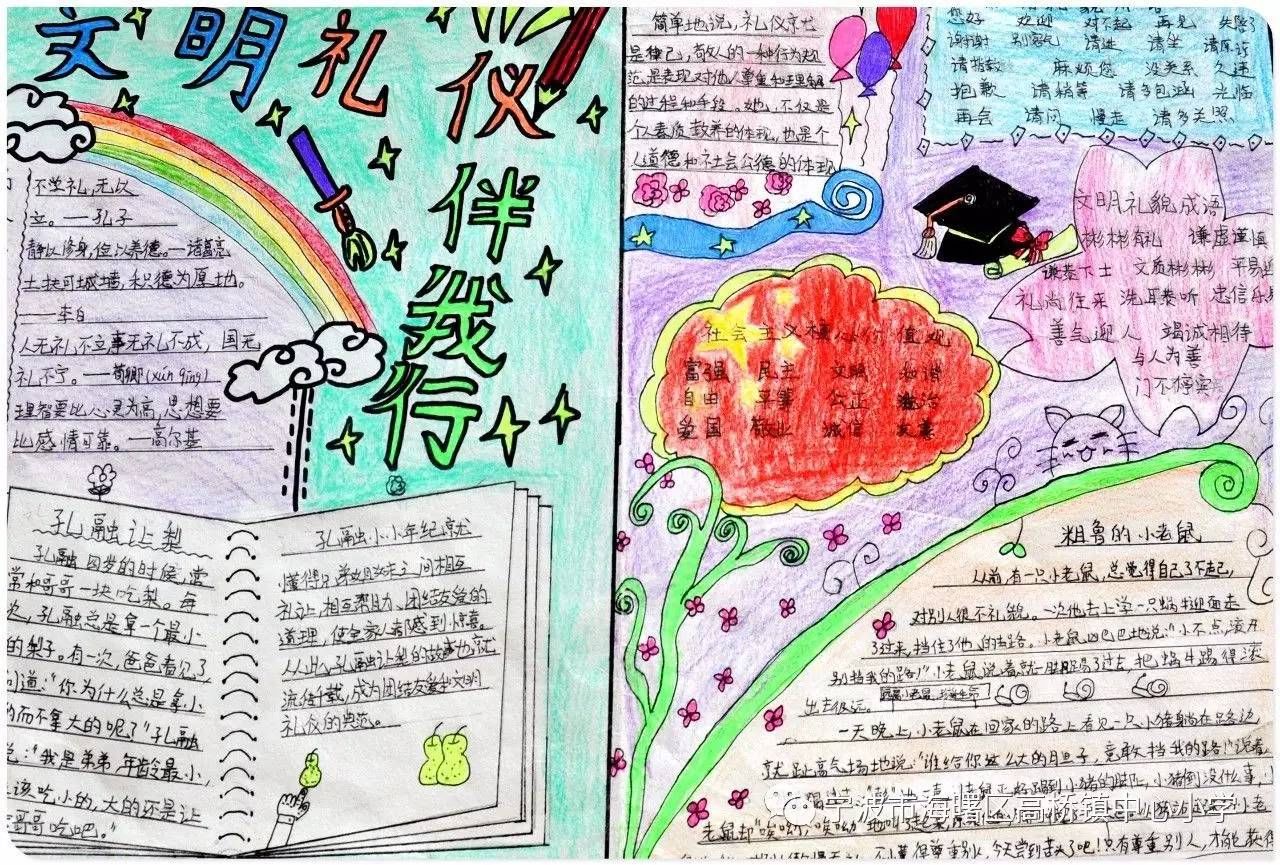 文明礼仪伴我行
不学礼,无以
立。——孔子
静以修身,俭以养德。——诸葛亮
土扶可城墙,积德为厚地。
——李白
人无礼不立事无礼不成,国无
礼不宁。——荀卿(xún qīng)
理智要比心灵为高,思想要
比感情可靠。——高尔基
孔融让梨
孔融四岁的时候,常
常和哥哥一块吃梨。每
次,孔融总是拿一个最小
的梨子。有一次,爸爸看见了
问道:"你为什么总是拿小
的而不拿大的呢?"孔融
说:"我是弟弟,年龄最小,
应该吃小的,大的还是让
哥哥吃吧。"
孔融小小年纪就
懂得兄弟姐妹之间相互
礼让、相互帮助、团结友爱的
道理,使全家人都感到惊喜。
从此,孔融让梨的故事也就
流传千载,成为团结友爱和文明
礼仪的典范。
简单地说,礼仪就是
是律己,敬人的一种行为规
范,是表现对他人尊重和理解
的过程和手段。她,不仅是
个人素质、教养的体现,也是个
人道德和社会公德的体现
您好 欢迎 对不起 再见 失陪了
谢谢 别客气 请进 请坐 请原谅
请指教 麻烦您 没关系 久违
抱歉 请稍等 请多包涵 光临
再会 请问 慢走 请多关照
文明礼貌成语
彬彬有礼 谦虚谨慎
谦恭下士 文质彬彬 平易近
礼尚往来 洗耳恭听 忠信乐易
善气迎人 竭诚相待
与人为善
门不停宾
社会主义核心价值观
富强 民主 文明 和谐
自由 平等 公正 法治
爱国 敬业 诚信 友善
粗鲁的小老鼠
从前,有一只小老鼠,总觉得自己了不起,
对别人很不礼貌。一次他去上学一只蜗牛迎面走
了过来,挡住了他的去路。小老鼠凶巴巴地说:"小不点,滚开
别挡我的路!"小老鼠说着就一脚踢了过去,把蜗牛踢得滚
出去很远。
一天晚上,小老鼠在回家的路上看见一只小猪躺在路边
就趾高气扬地说:"谁给你这么大的胆子,竟敢挡我的路!"说着
宁波市海曙区高桥镇中心小学